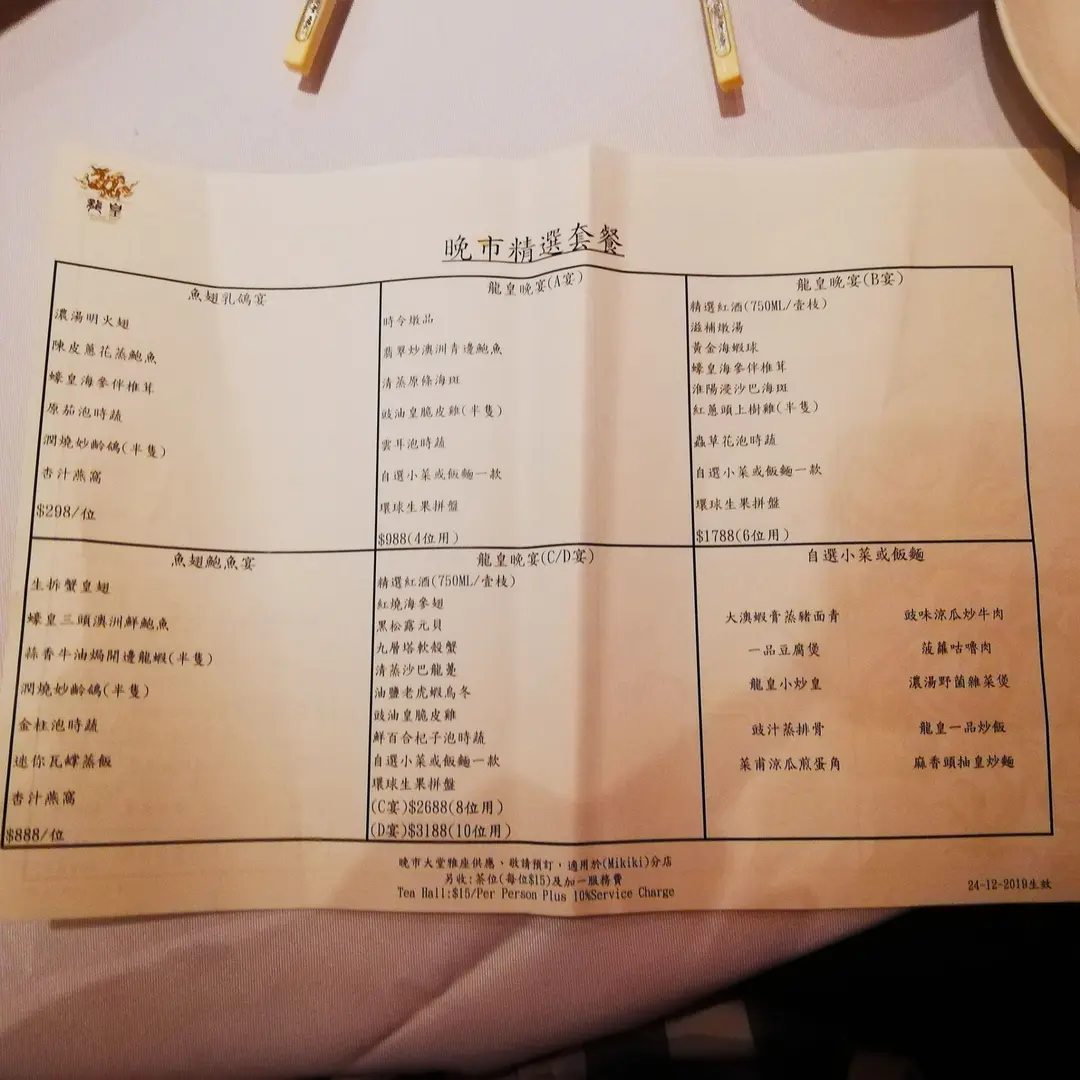 龍皇
晚市精選套餐
魚翅乳鴿宴
濃湯明火翅
陳皮蔥花蒸鮑魚
蠔皇海參伴椎茸
原茄泡時蔬
潤燒妙齡鴿(半隻)
杏汁燕窩
$298/位
龍皇晚宴(A宴)
時令燉品
翡翠炒澳洲青邊鮑魚
清蒸原條海斑
豉油皇脆皮雞(半隻)
雲耳泡時蔬
自選小菜或飯麵一款
環球生果拼盤
$988(4位用)
龍皇晚宴(B宴)
精選紅酒(750ML/壹枝)
滋補燉湯
黃金海蝦球
蠔皇海參伴椎茸
淮陽浸沙巴海斑
紅蔥頭上樹雞(半隻)
蟲草花泡時蔬
自選小菜或飯麵一款
環球生果拼盤
$1788(6位用)
魚翅鮑魚宴
生拆蟹皇翅
蠔皇三頭澳洲鮮鮑魚
蒜香牛油焗開邊龍蝦(半隻)
潤燒妙齡鴿(半隻)
金柱泡時蔬
迷你瓦罉蒸飯
杏汁燕窩
$888/位
龍皇晚宴(C/D宴)
精選紅酒(750ML/壹枝)
紅燒海參翅
黑松露元貝
九層塔軟殼蟹
清蒸沙巴龍躉
油鹽老虎蝦烏冬
豉油皇脆皮雞
鮮百合杞子泡時蔬
自選小菜或飯麵一款
環球生果拼盤
(C宴)$2688(8位用)
(D宴)$3188(10位用)
自選小菜或飯麵
大澳蝦膏蒸豬面青 豉味涼瓜炒牛肉
一品豆腐煲 菠蘿咕嚕肉
龍皇小炒皇 濃湯野菌雜菜煲
豉汁蒸排骨 龍皇一品炒飯
菜甫涼瓜煎蛋角 麻香頭抽皇炒麵
晚市大堂雅座供應、敬請預訂，適用於(Mikiki)分店
另收:茶位(每位$15)及加一服務費
Tea Hall:$15/Per Person Plus 10%Service Charge
24-12-2019生效